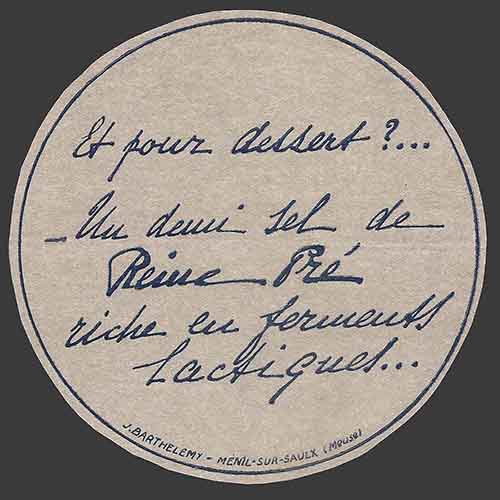 Et pour dessert ?...
- Un demi sel de
Reine Pré
riche en ferments
lactiques...
J. BARTHELEMY - MENIL-SUR-SAULX (Meuse)